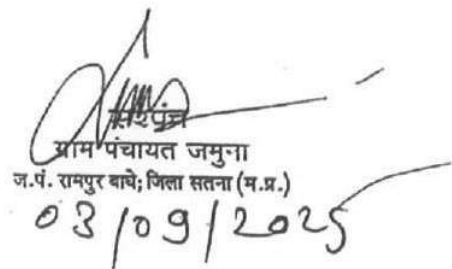 सरपंच
ग्राम पंचायत जमुना
ज.पं. रामपुर बाघे; जिला सतना (म.प्र.)
03/09/2025